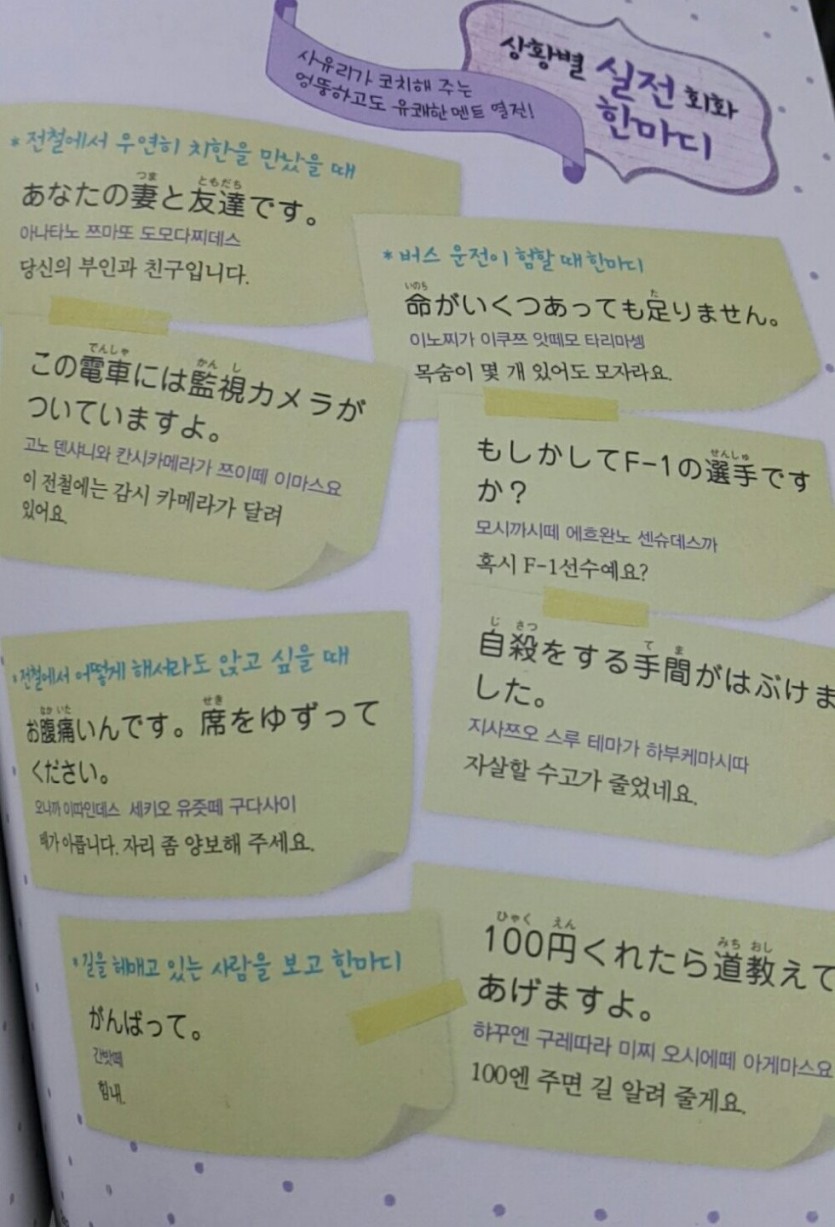 사유리가 코치해 주는
엉뚱하고도 유쾌한 멘트 열전!
상황별 실전 회화
한마디
*전철에서 우연히 치한을 만났을 때
つま ともだち
あなたの妻と友達です。
아나타노 쯔마또 도모다찌데스
당신의 부인과 친구입니다.
でんしゃ かんし
この電車には監視カメラが
ついていますよ。
고노 덴샤니와 칸시카메라가 쯔이떼 이마스요
이 전철에는 감시 카메라가 달려
있어요.
*버스 운전이 험할 때 한마디
いのち た
命がいくつあっても足りません。
이노찌가 이쿠쯔 앗떼모 타리마셍
목숨이 몇 개 있어도 모자라요.
せんしゅ
もしかしてF-1の選手です
か?
모시까시떼 에흐완노 센슈데스까
혹시 F-1선수예요?
じ さつ て ま
自殺をする手間がはぶけま
した。
지사쯔오 스루 테마가 하부케마시따
자살할 수고가 줄었네요.
*전철에서 어떻게 해서라도 앉고 싶을 때
なか いた せき
お腹痛いんです。席をゆずって
ください。
오나까 이따인데스 세키오 유즛떼 구다사이
배가 아픕니다. 자리 좀 양보해 주세요.
*길을 헤매고 있는 사람을 보고 한마디
がんばって。
간밧떼
힘내.
ひゃく えん みち おし
100円くれたら道教えて
あげますよ。
햐꾸엔 구레따라 미찌 오시에떼 아게마스요
100엔 주면 길 알려 줄게요.